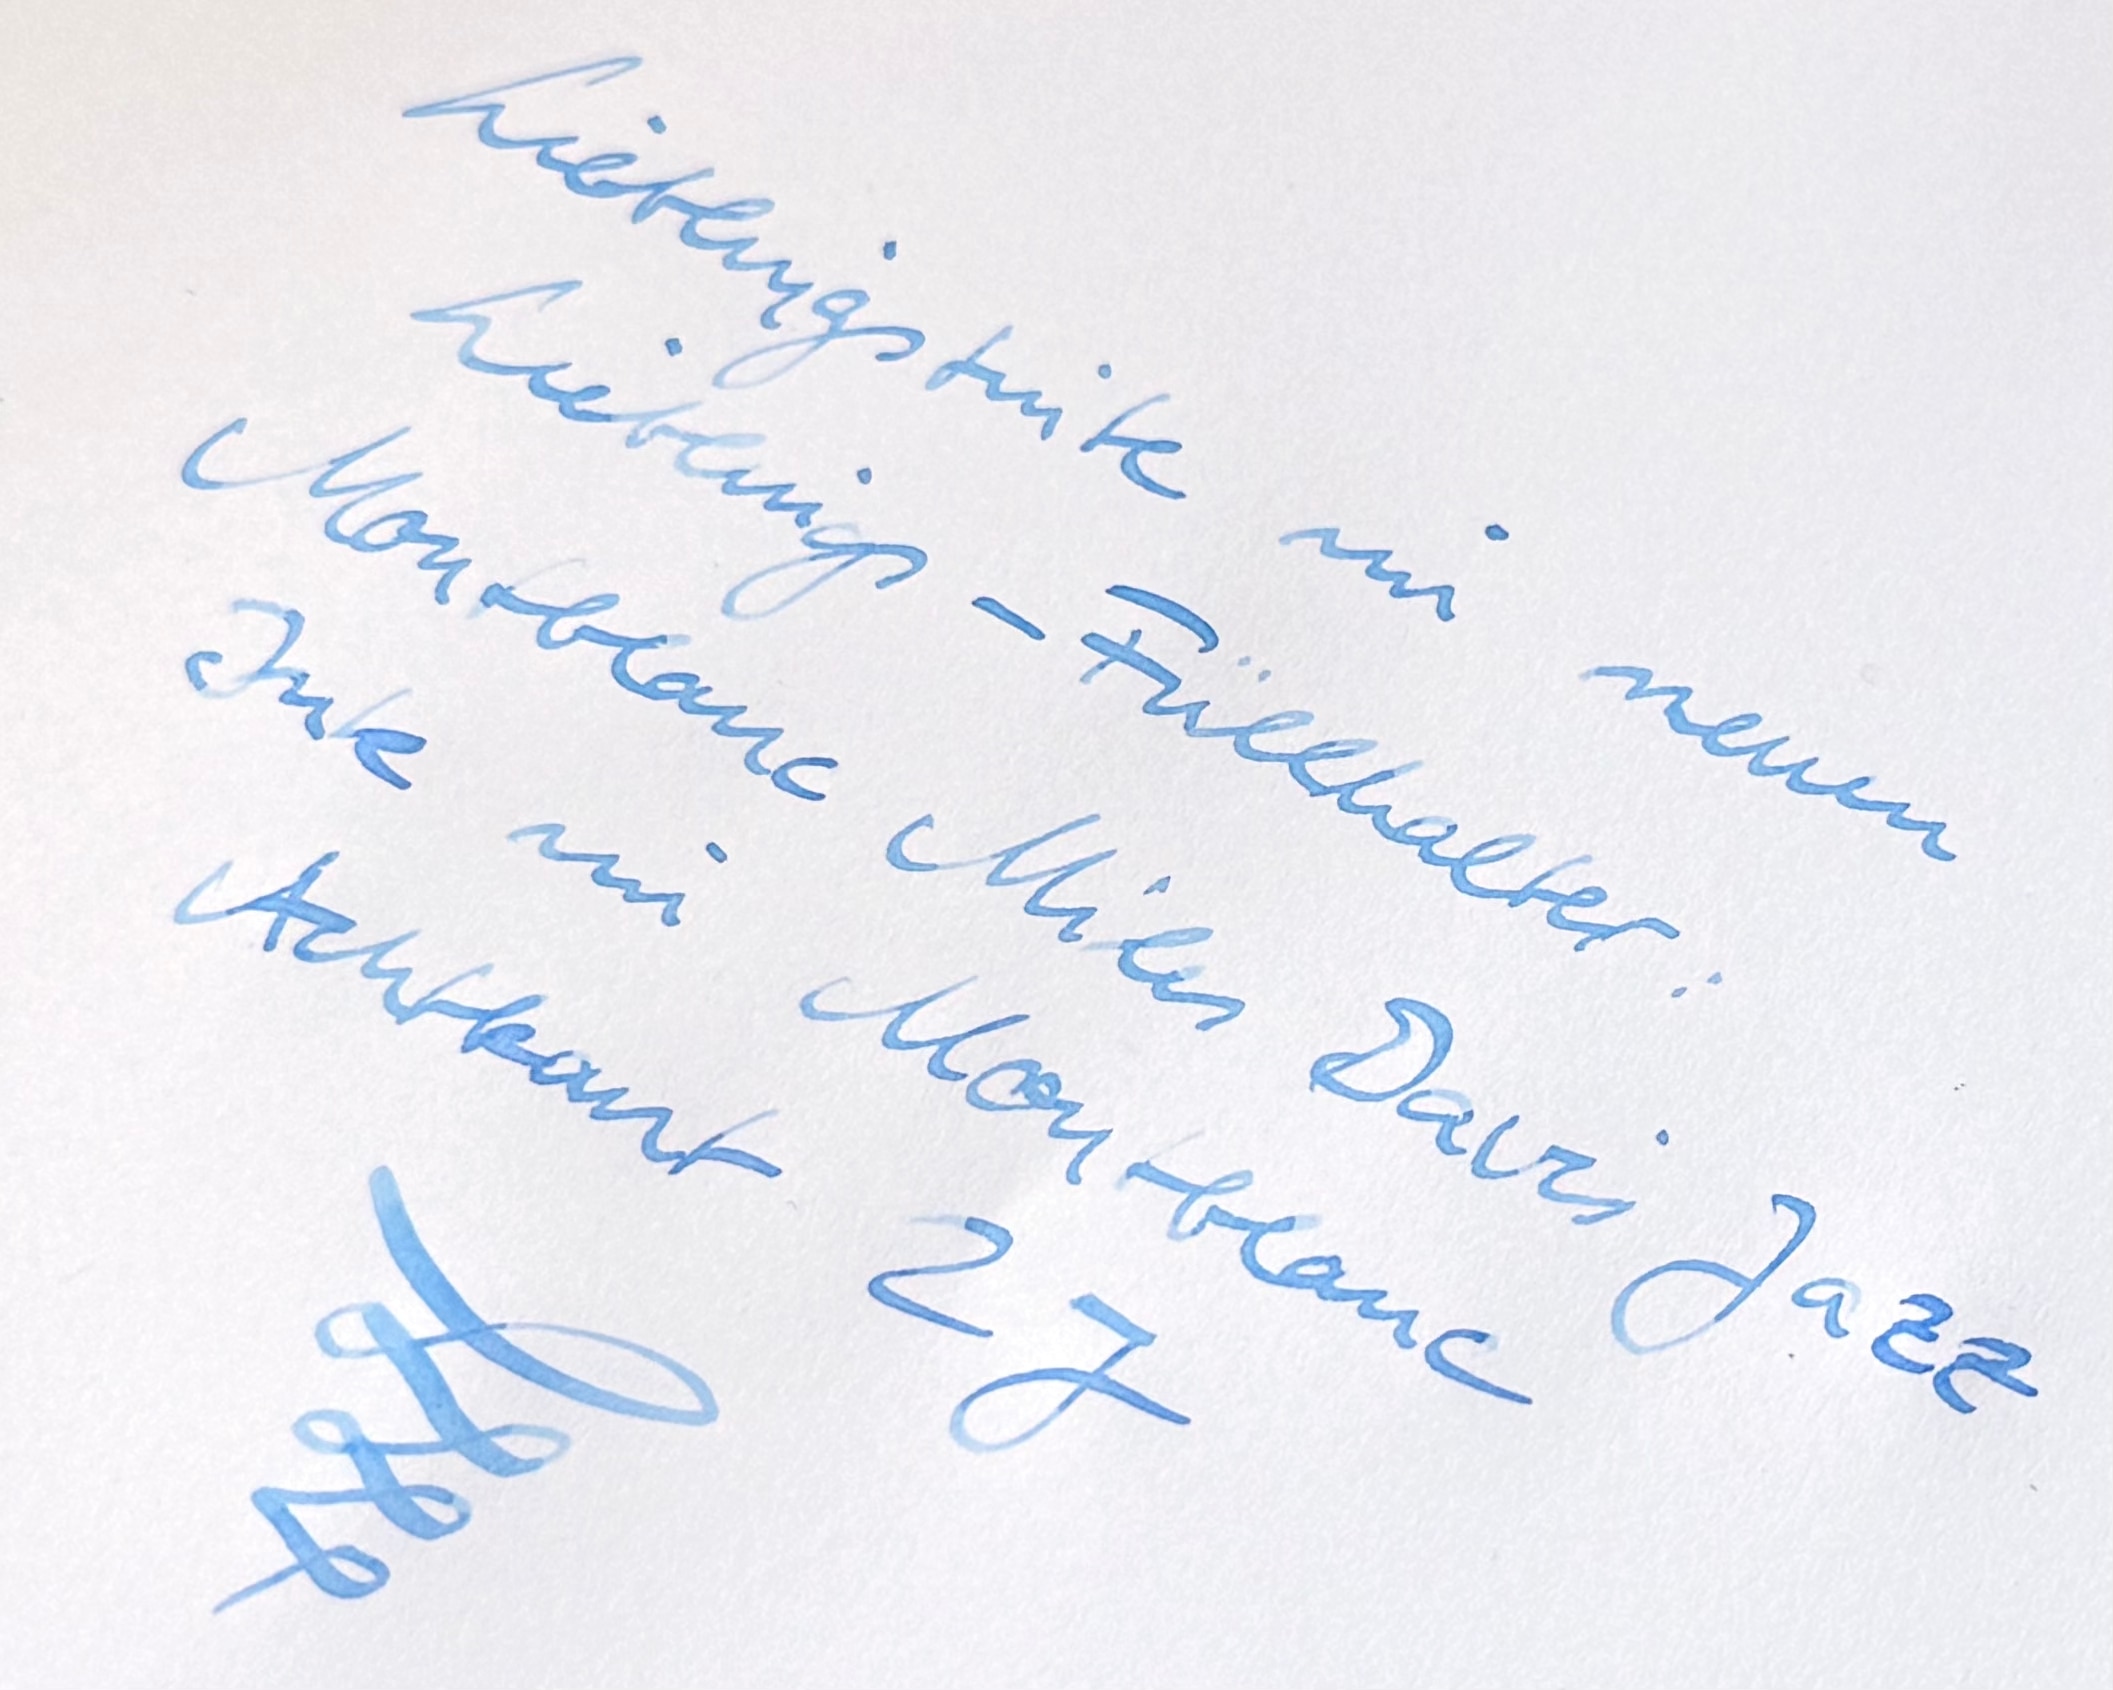 Lieblingstinte in neuem
Lieblings-Füllhalter:
Montblanc Miles Davis Jazz
Ink in Montblanc
Achtkant 27